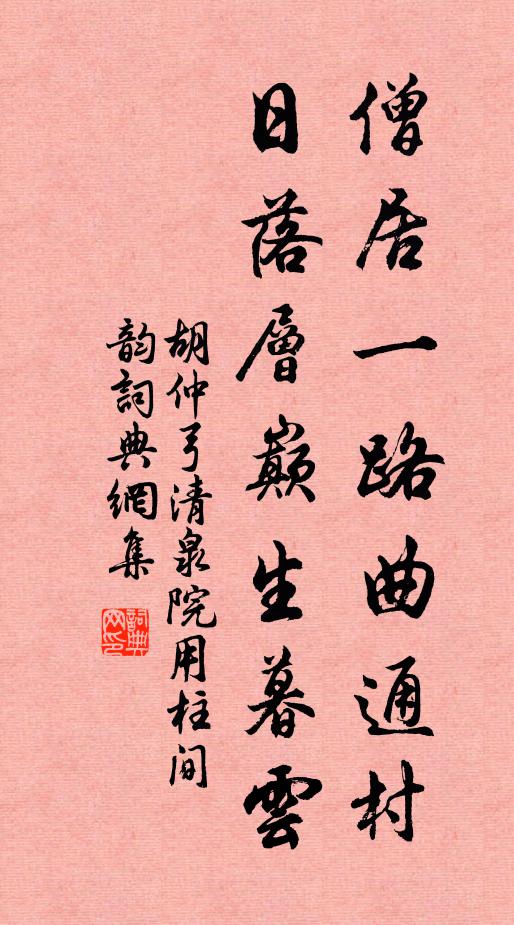 僧居一路曲通村
日落層巔生暮雲
胡仲弓清泉院用柱间
韵詞典網集
詞典网印